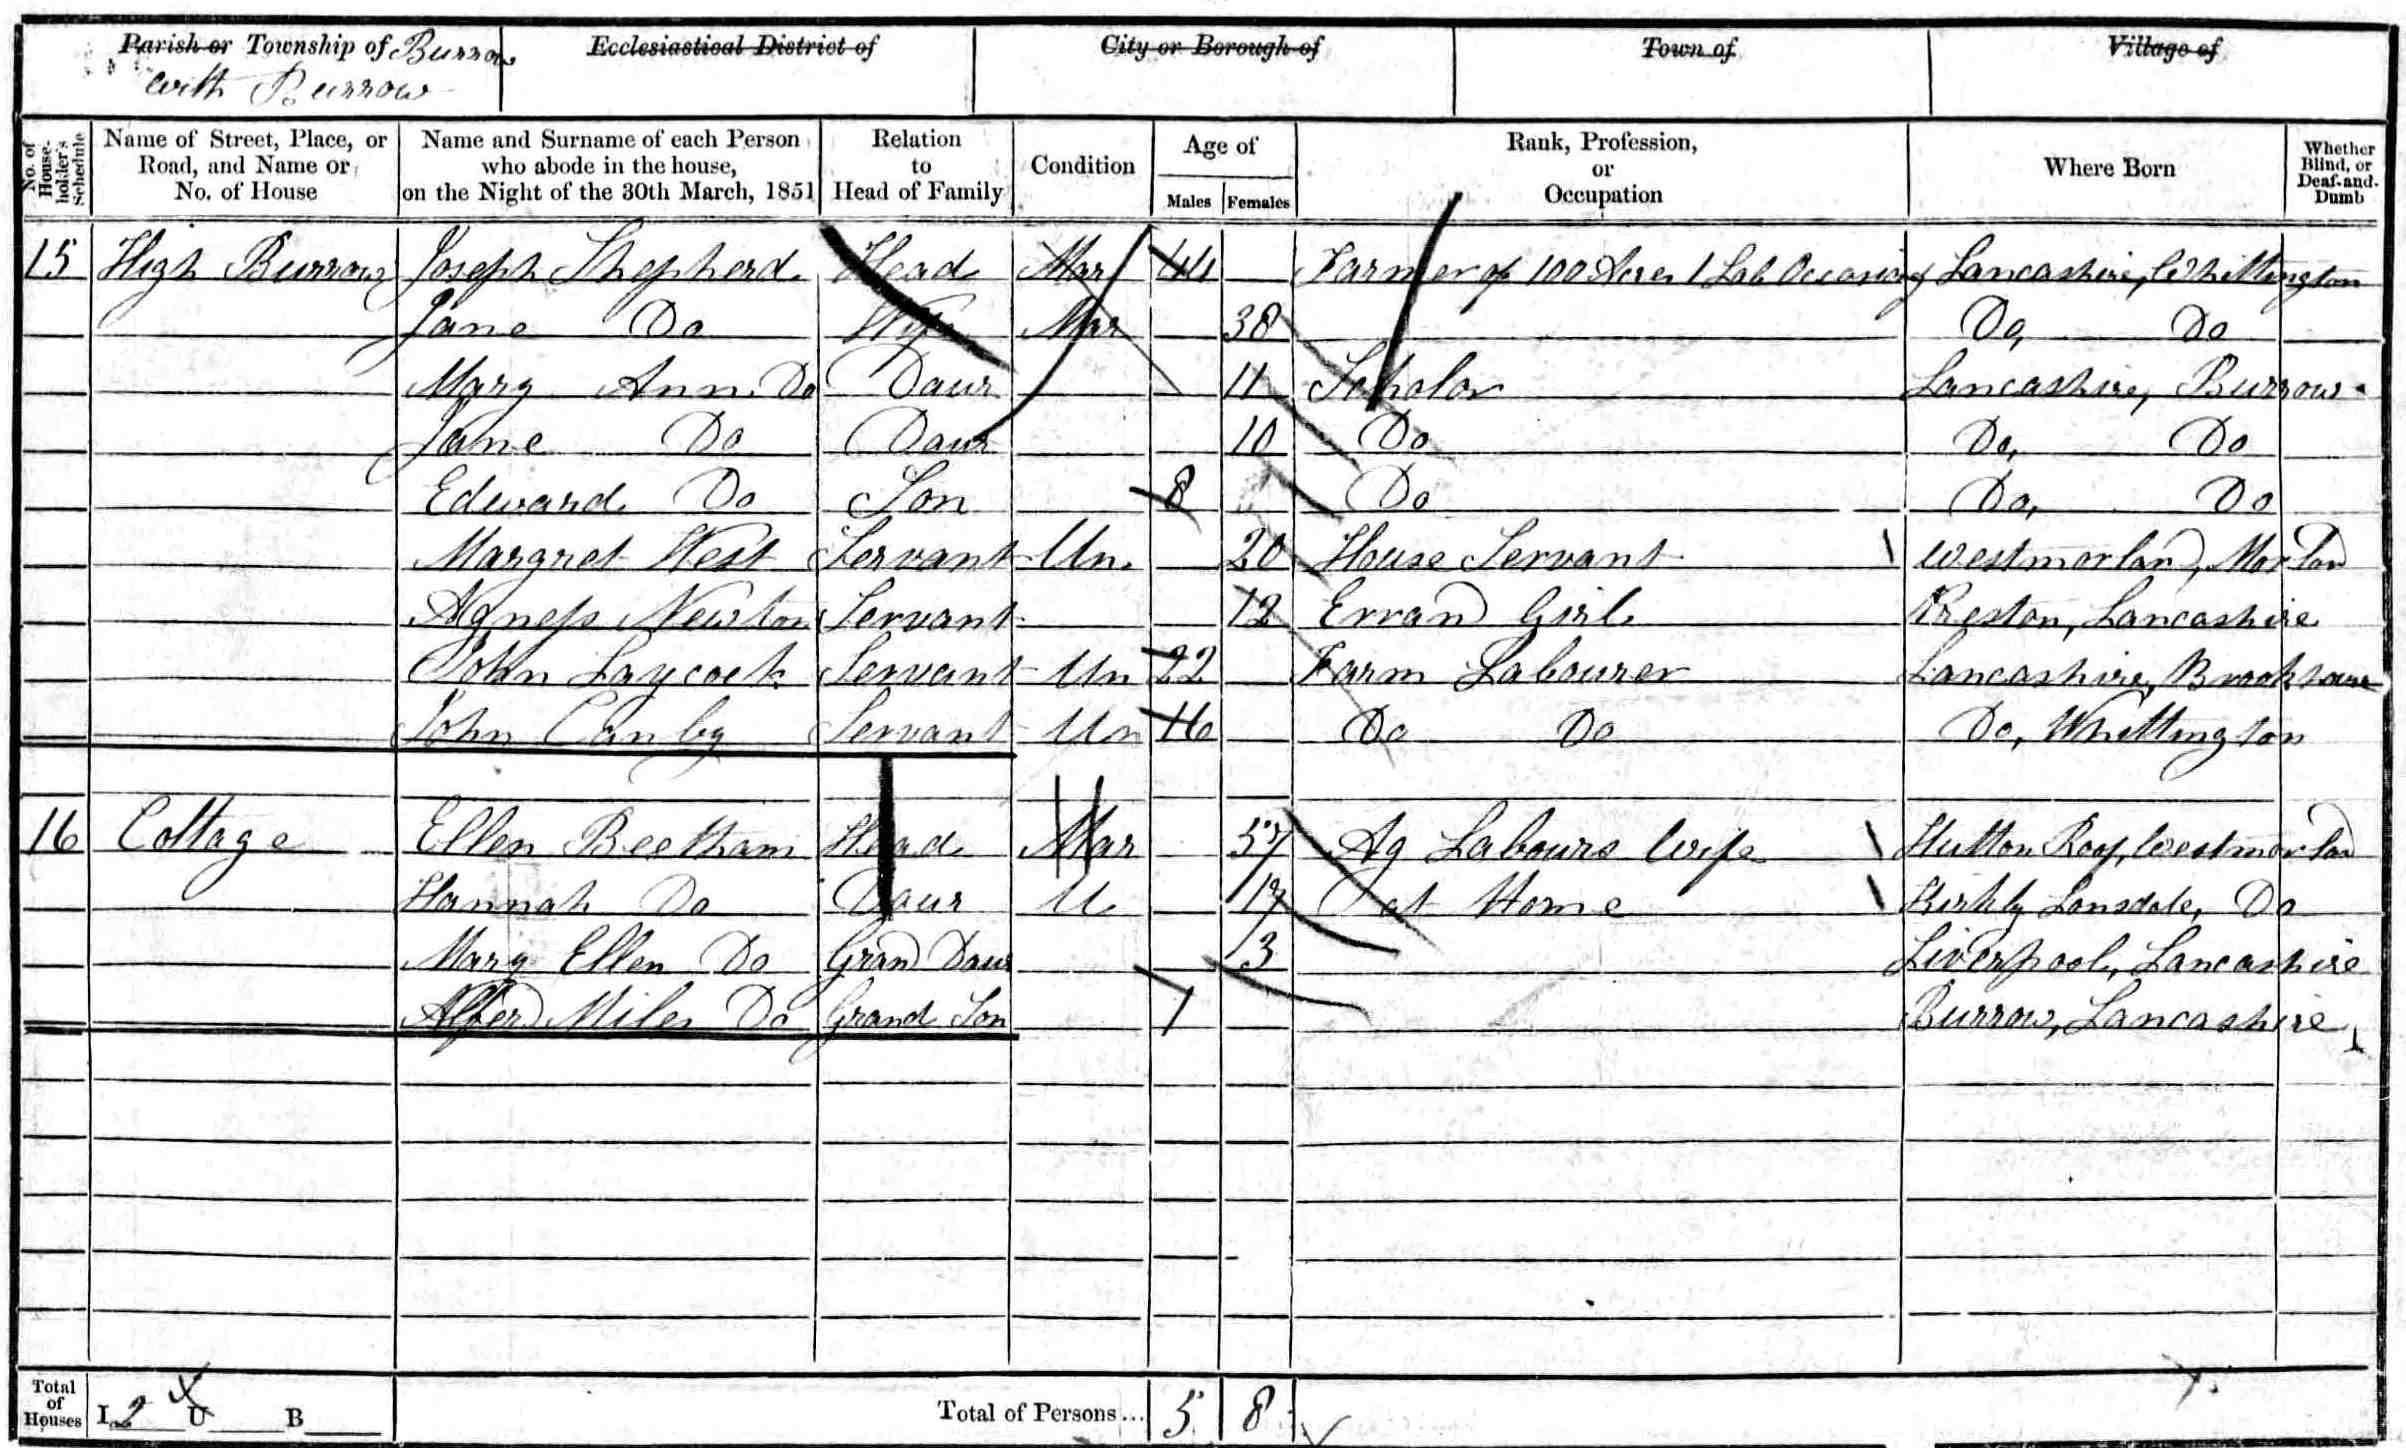 Parish or Township of Burrow with Burrow
Ecclesiastical District of
City or Borough of
Town of
Village of
No. of House-holder's Schedule
Name of Street, Place, or Road, and Name or No. of House
Name and Surname of each Person who abode in the house, on the Night of the 30th March, 1851
Relation to Head of Family
Condition
Age of
Males Females
Rank, Profession, or Occupation
Where Born
Whether Blind, or Deaf-and-Dumb
15 High Burrow Joseph Shepherd Head Mar 44 Farmer of 100 Acres 1 Lab Lancashire, Whittington
Jane Do Wife Mar 38 Do, Do
Mary Ann Do Daur 11 Scholar Lancashire, Burrow
Jane Do Daur 10 Do Do, Do
Edward Do Son 8 Do Do, Do
Margret West Servant Un. 20 House Servant Westmorland, Morland
Agness Newton Servant 12 Errand Girl Preston, Lancashire
John Laycock Servant Un 22 Farm Labourer Lancashire,
John Canby Servant Un 16 Do Do Do, Whittington
16 Cottage Ellen Beetham Head Mar 57 Ag Labours Wife Hutton Roof, Westmorland
Hannah Do Daur U 17 at Home Kirkby Lonsdale, Do
Mary Ellen Do Grand Daur 3 Liverpool, Lancashire
Miles Do Grand Son 1 Burrow, Lancashire
Total of Houses I 2 U B Total of Persons... 5 8